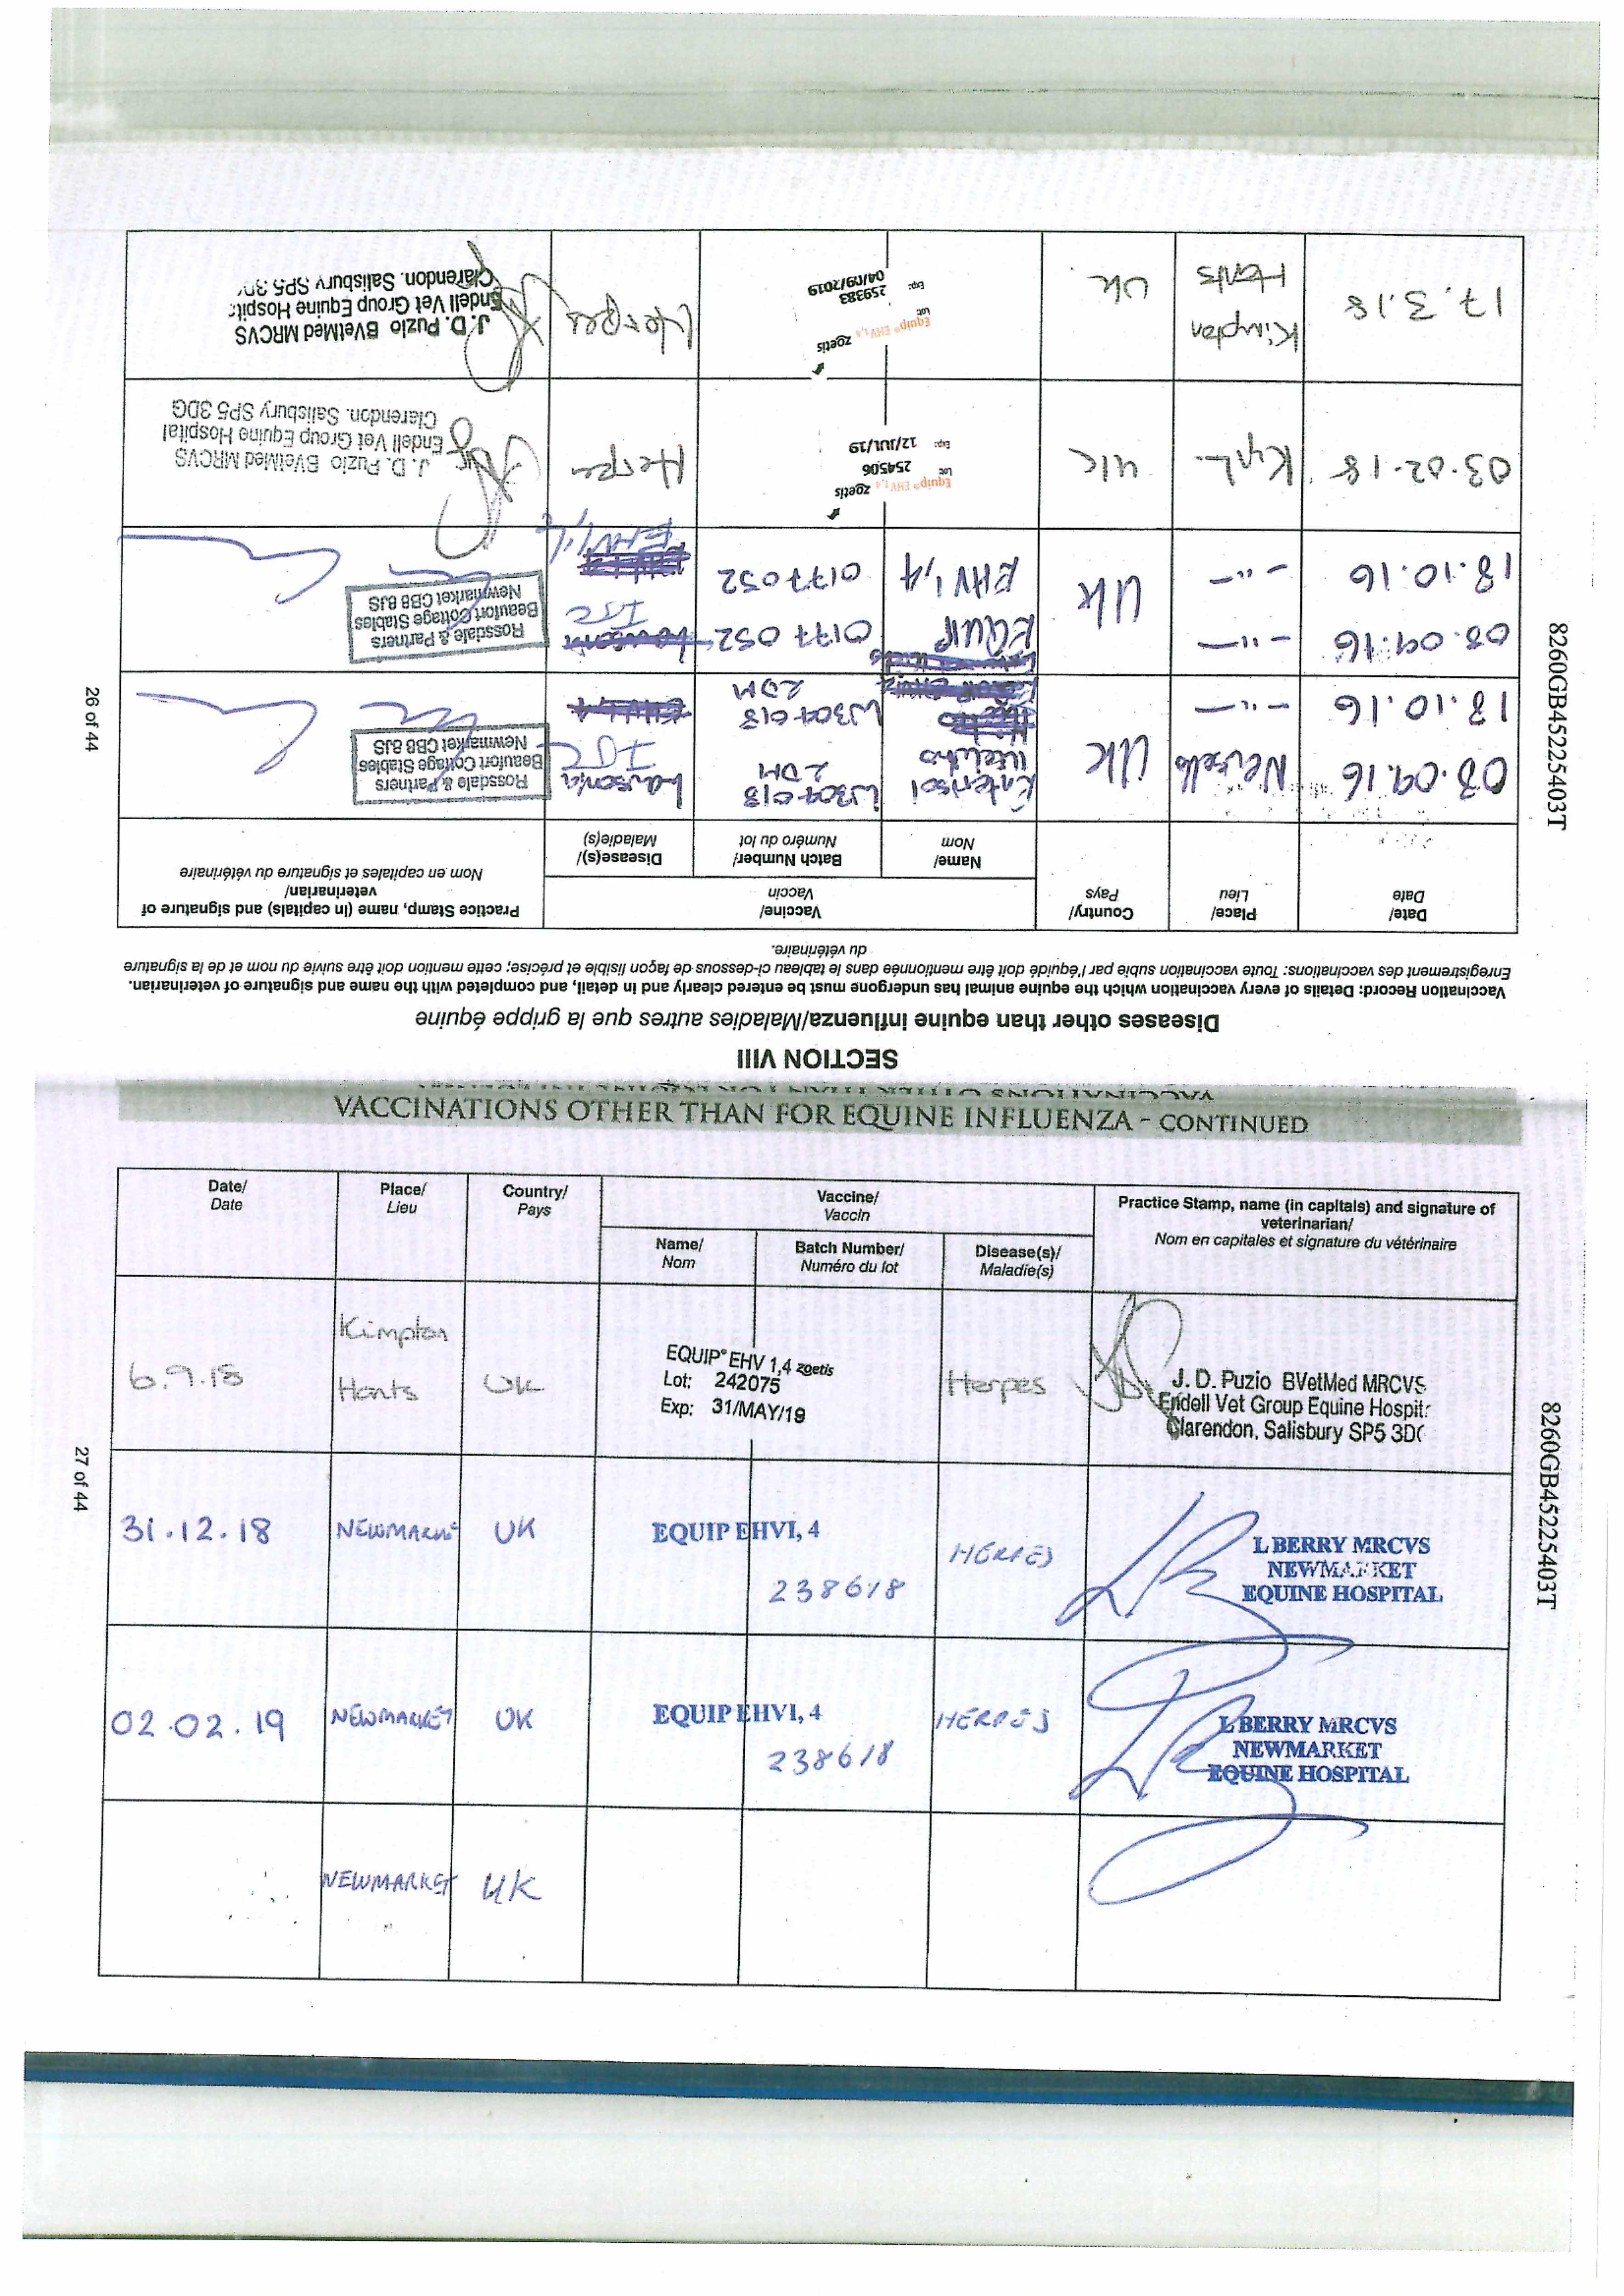 SECTION VIII
Diseases other than equine influenza/Maladies autres que la grippe équine
Vaccination Record: Details of every vaccination which the equine animal has undergone must be entered clearly and in detail, and completed with the name and signature of veterinarian.
Enregistrement des vaccinations: Toute vaccination subie par l'équidé doit être mentionnée dans le tableau ci-dessous de façon lisible et précise; cette mention doit être suivie du nom et de la signature
du vétérinaire.
Date/
Date
Place/
Lieu
Country/
Pays
Vaccine/
Vaccin
Name/
Nom
Batch Number/
Numéro du lot
Disease(s)/
Maladie(s)
Practice Stamp, name (in capitals) and signature of
veterinarian/
Nom en capitales et signature du vétérinaire
08.09.16
Newsells
UK
Enterisol
Ileitis
L304013
2DM
Lawsonia
Rossdale & Partners
Beaufort Cottage Stables
Newmarket CB8 8JS
18.10.16
-"-
L304013
2DM
08.09.16
-"-
UK
EQUIP
0177052
Rossdale & Partners
Beaufort Cottage Stables
Newmarket CB8 8JS
18.10.16
-"-
EHV 1,4
0177052
EHV1,4
03.02.18
UK
Equip® EHV 1,4 zoetis
Lot 254506
Exp: 12/JUL/19
J. D. Puzio BVetMed MRCVS
Endell Vet Group Equine Hospital
Clarendon. Salisbury SP5 3DG
17.3.18
Kimpton
Hants
UK
Equip® EHV 1,4 zoetis
Lot 259383
Exp: 04/09/2019
Herpes
J. D. Puzio BVetMed MRCVS
Endell Vet Group Equine Hospit
Clarendon. Salisbury SP5 3D
26 of 44
8260GB45225403T
VACCINATIONS OTHER THAN FOR EQUINE INFLUENZA - CONTINUED
Date/
Date
Place/
Lieu
Country/
Pays
Vaccine/
Vaccin
Name/
Nom
Batch Number/
Numéro du lot
Disease(s)/
Maladie(s)
Practice Stamp, name (in capitals) and signature of
veterinarian/
Nom en capitales et signature du vétérinaire
6.9.18
Kimpton
Hants
UK
EQUIP® EHV 1,4 zoetis
Lot: 242075
Exp: 31/MAY/19
Herpes
J. D. Puzio BVetMed MRCVS
Endell Vet Group Equine Hospit
Clarendon, Salisbury SP5 3D
31.12.18
NEWMARKET
UK
EQUIP EHV1, 4
238618
HERPES
L BERRY MRCVS
NEWMARKET
EQUINE HOSPITAL
02.02.19
NEWMARKET
UK
EQUIP EHV1, 4
238618
HERPES
L BERRY MRCVS
NEWMARKET
EQUINE HOSPITAL
NEWMARKET
UK
27 of 44
8260GB45225403T